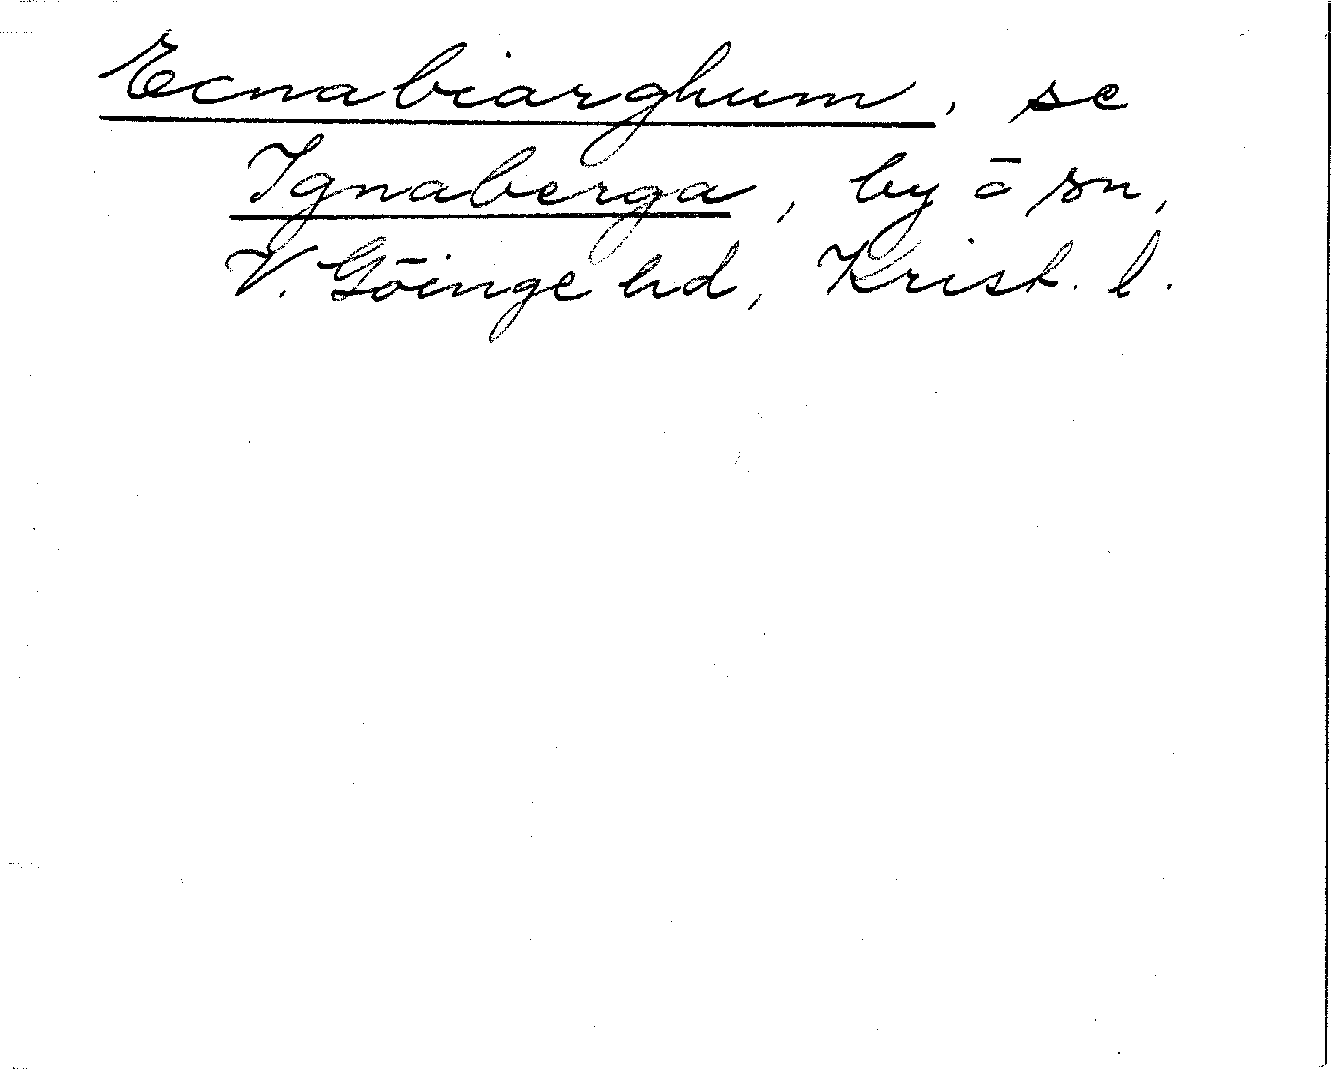 Ecnabiarghum, se
Ignaberga, by o sn,
V. Göinge hd, Krist. l.